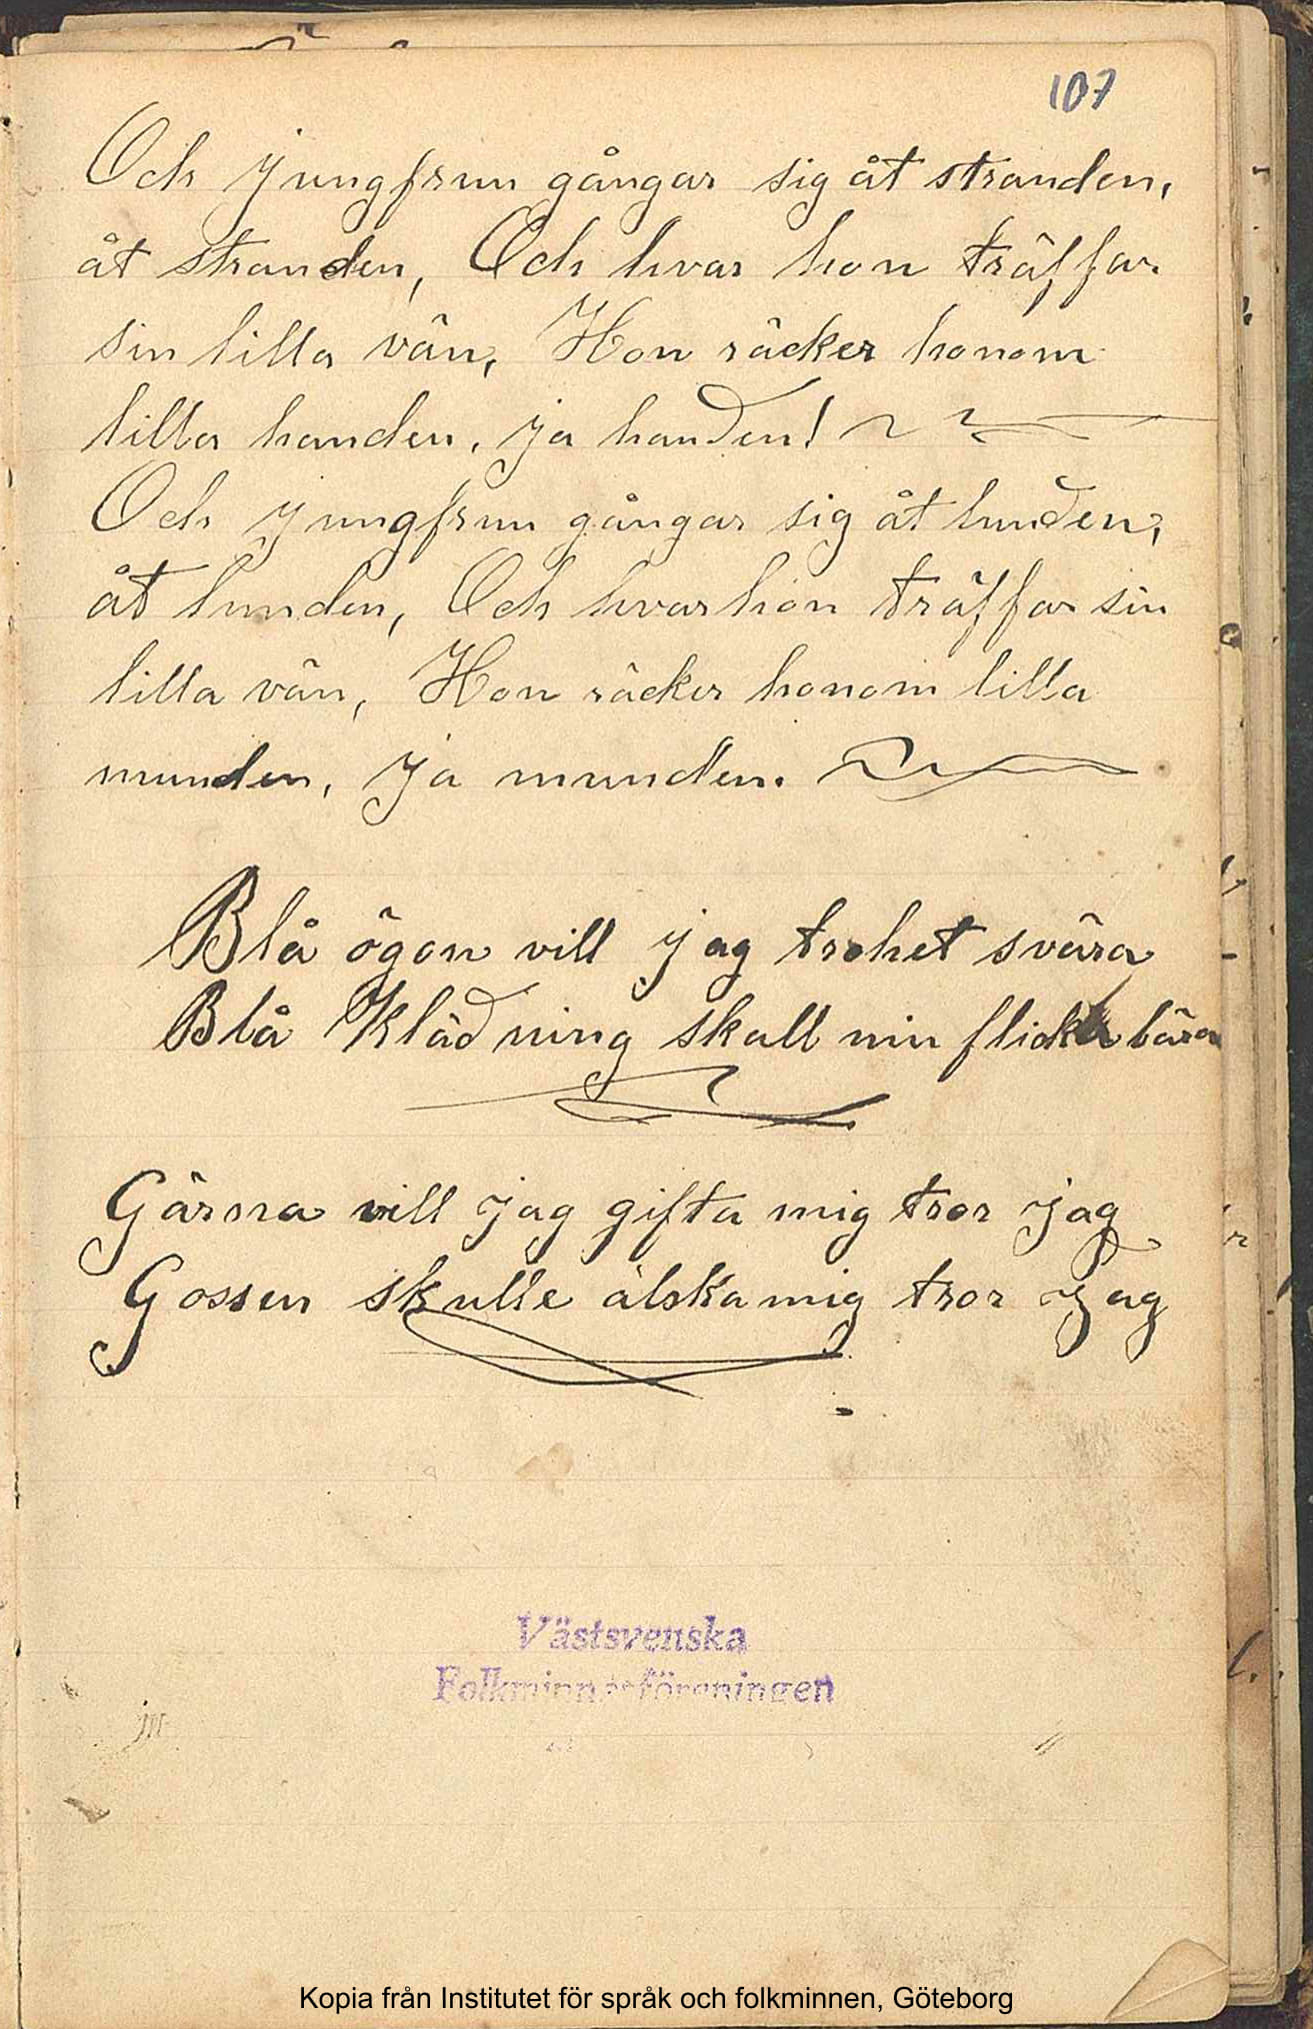 107
Och jungfrun gångar sig åt stranden,
åt stranden, Och hvar hon träffar
sin lilla vän, Hon räcker honom
lilla handen, ja handen!
Och jungfrun gångar sig åt lunden,
åt lunden, Och hvar hon träffar sin
lilla vän, Hon räcker honom lilla
munden, ja munden.
Blå ögon vill jag trohet svära
Blå Klädning skall min flicka bära
Gärna vill jag gifta mig tror jag
Gossen skulle älska mig tror jag
Västsvenska
Folkminnesföreningen
Kopia från Institutet för språk och folkminnen, Göteborg